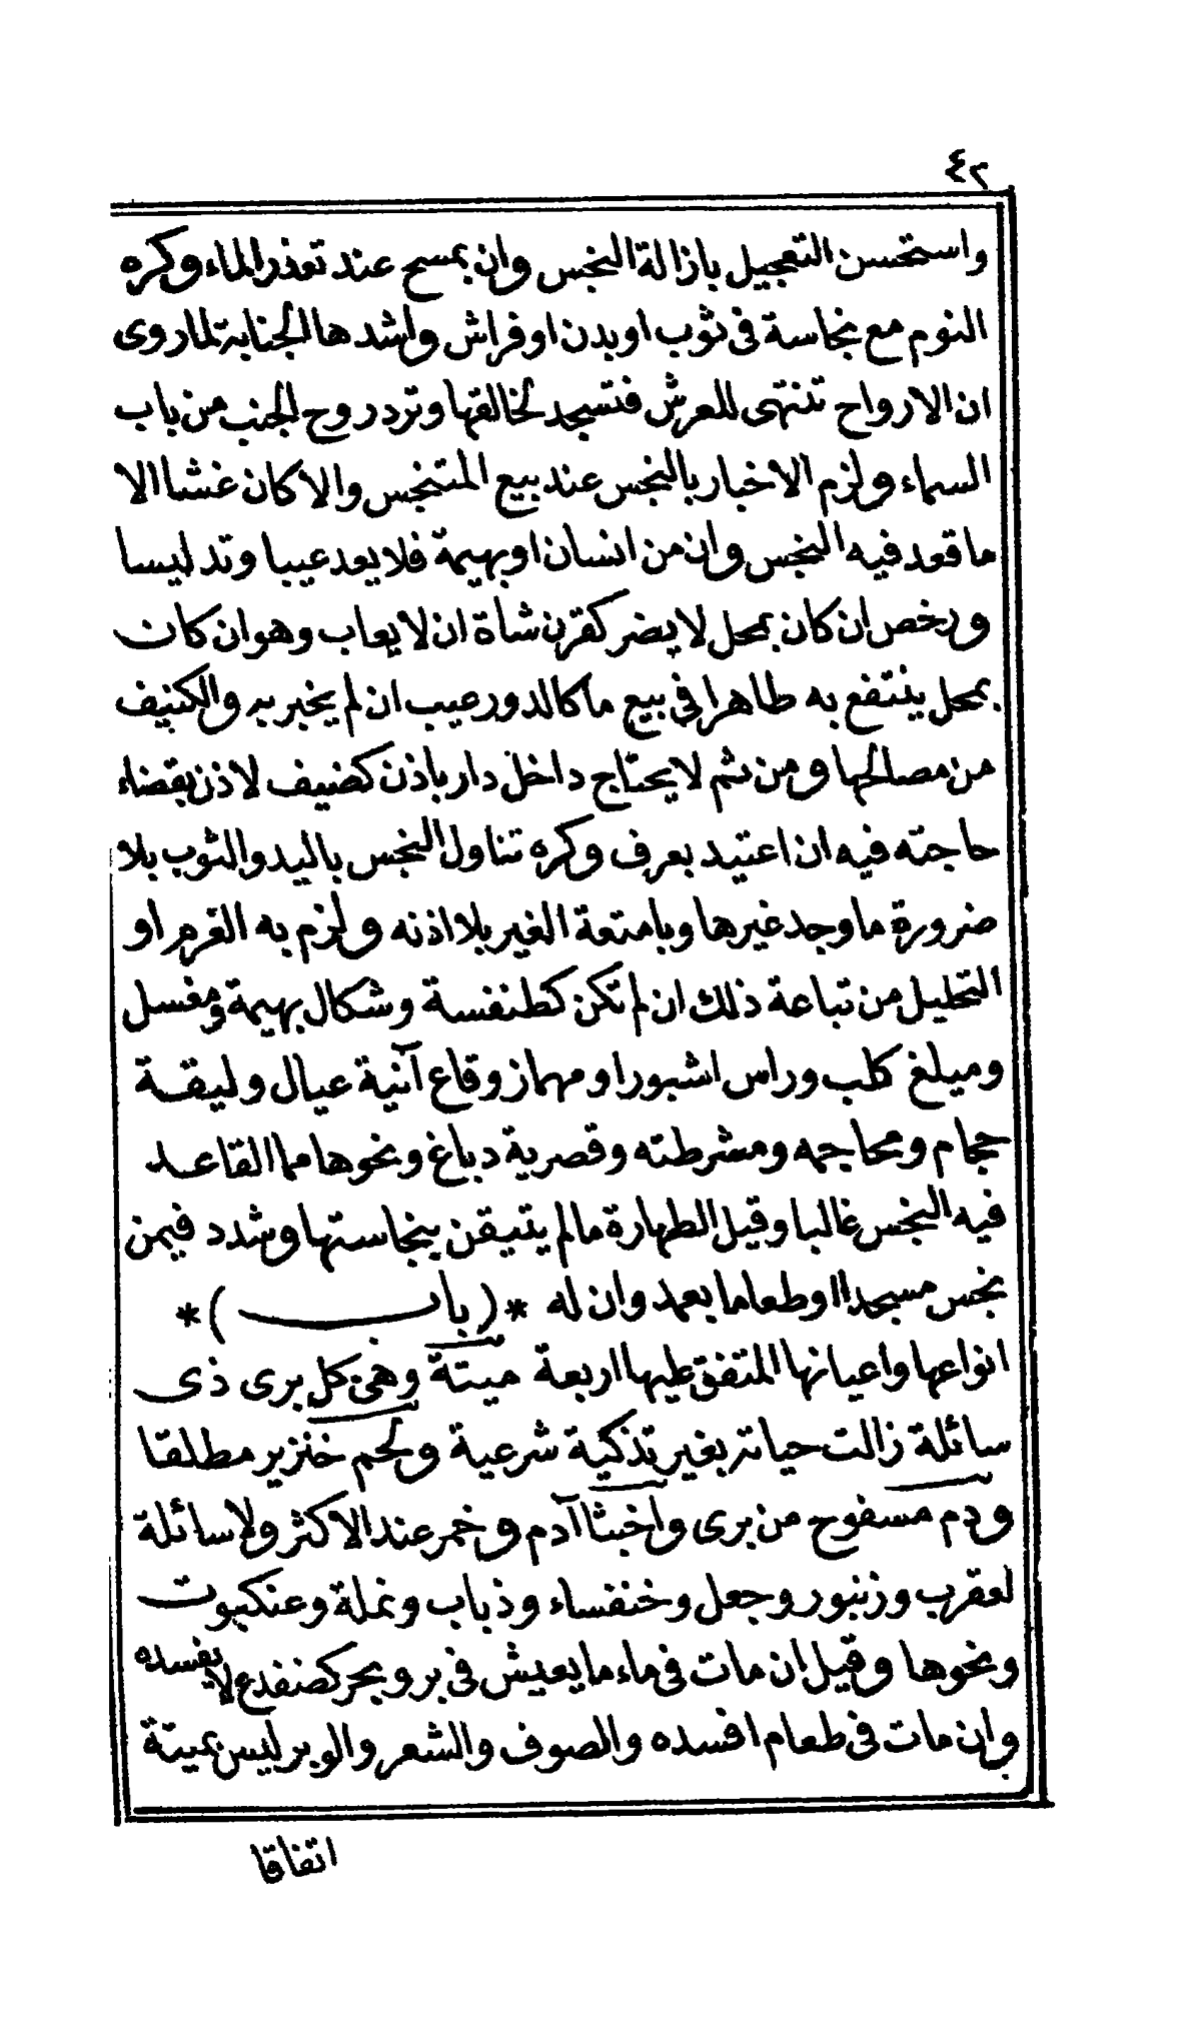 ٤٢
واستحسن التعجيل بازالة النجس وان بمسح عند تعذر الماء وكره
النوم مع نجاسة فى ثوب او بدن او فراش واشدها الجنابة لما روى
ان الارواح تنتهى للعرش فتسجد لخالقها وترد روح الجنب من باب
السماء ولزم الاخبار بالنجس عند بيع المتنجس والا كان غشا الا
ما قعد فيه النجس وان من انسان او بهيمة فلا يعد عيبا وتدليسا
ورخص ان كان بمحل لا يضر كقرن شاة ان لا يعاب وهو ان كان
بمحل ينتفع به طاهرا فى بيع ما كالدور عيب ان لم يخبر به والكنيف
من مصالحها ومن ثم لا يحتاج داخل دار باذن كضيف لاذن بقضاء
حاجته فيه ان اعتيد بعرف وكره تناول النجس باليد والثوب بلا
ضرورة ما وجد غيرها وبامتعة الغير بلا اذنه ولزم به الغرم او
التحليل من تباعة ذلك ان لم تكن كطنفسة وشكال بهيمة ومغسل
وميلغ كلب وراس اشبور او مهماز وقاع آنية عيال وليقة
حجام ومحاجمه ومشرطته وقصرية دباغ ونحوها مما القاعد
فيه النجس غالبا وقيل الطهارة ما لم يتيقن بنجاستها وشدد فيمن
نجس مسجدا او طعاما بعمد وان له * ( باب ) *
انواعها واعيانها المتفق عليها اربعة ميتة وهى كل برى ذى
سائلة زالت حياته بغير تذكية شرعية ولحم خنزير مطلقا
ودم مسفوح من برى واخبثا آدم وخمر عند الاكثر ولا سائلة
لعقرب وزنبور وجعل وخنفساء وذباب ونملة وعنكبوت
ونحوها وقيل ان مات فى ماء ما يعيش فى بر وبحر كضفدع لا يفسده
وان مات فى طعام افسده والصوف والشعر والوبر ليس بميتة
اتفاقا